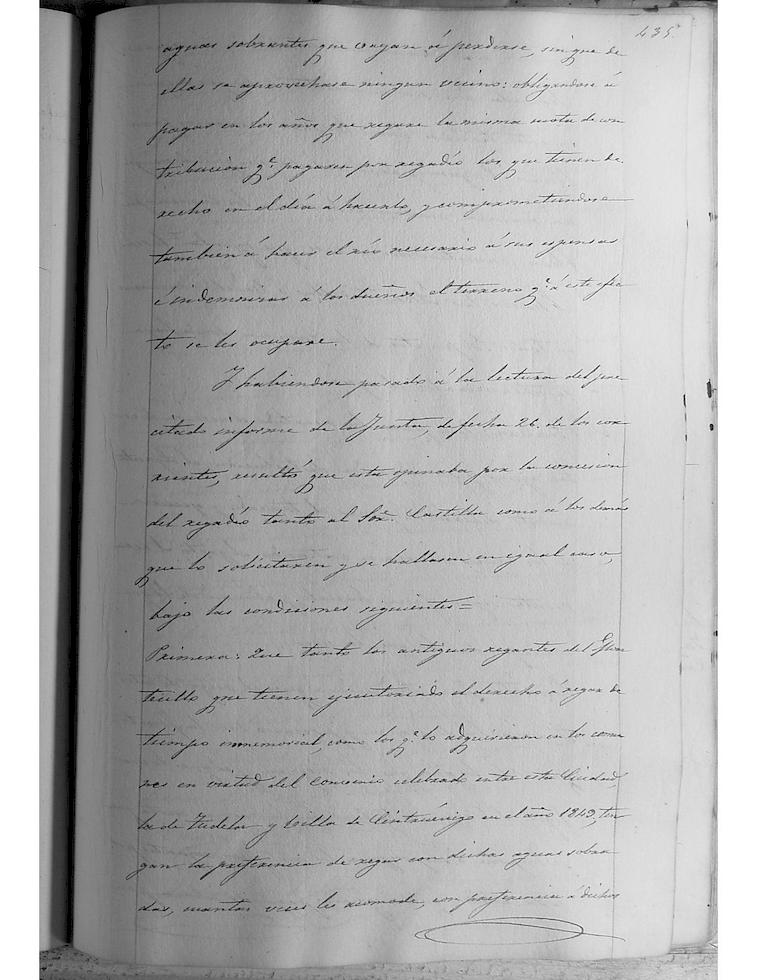 435.
aguas sobrantes que vayan á perderse, sin que de
ellas se aprovechase ningun vecino: obligandose á
pagar en los años que regare la misma cuota de con
tribucion q.e pagaren por regadío los que tienen de
recho en el día á hacerlo, y comprometiendose
tambien á hacer el rio necesario á sus espensas
é indemnizar á los dueños el terreno q.e á este efec
to se les ocupare.
Y habiendose pasado á la lectura del pre
citado informe de la Junta, de fecha 26. de los cor
rientes, resultó que esta opinaba por la concesion
del regadío tanto al Sor. Castilla como á los demás
que lo solicitaren y se hallasen en igual caso,
bajo las condiciones siguientes=
Primera: Que tanto los antiguos regantes del
que tienen ejecutoriado el derecho á regar de
tiempo inmemorial, como los q.e lo adquirieron en los
en virtud del Convenio celebrado entre esta Ciudad,
la de Tudela y Villa de Cintruénigo en el año 1843, ten
gan la preferencia de regar con dichas aguas sobra
das, cuantas veces les acomode, con preferencia á dichos